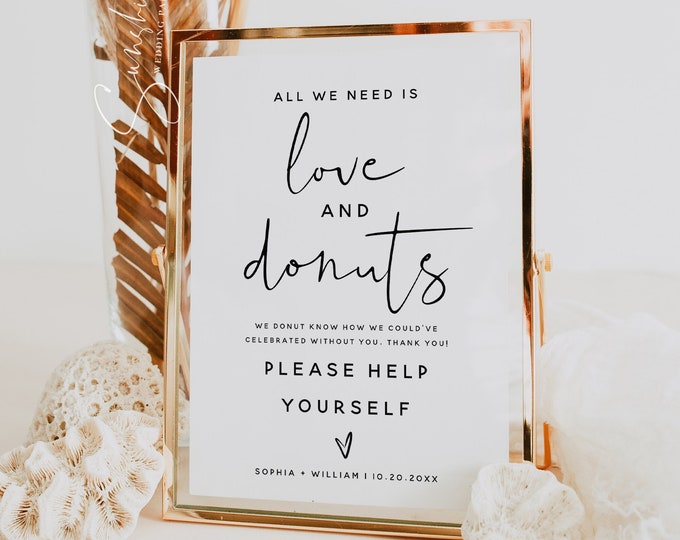 ALL WE NEED IS
love
AND
donuts
WE DONUT KNOW HOW WE COULD'VE
CELEBRATED WITHOUT YOU. THANK YOU!
PLEASE HELP
YOURSELF
SOPHIA + WILLIAM | 10.20.20XX